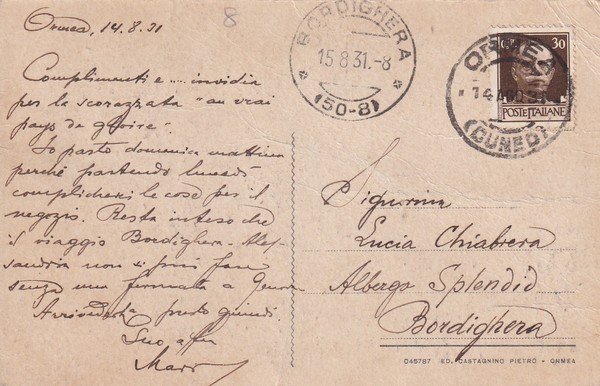 Ormea, 14.8.31
8
Complimenti e .... invidia
per la scorazzata "au vrai
pays de
Io parto domenica mattina
perché partendo lunedì
complicherei le cose per il
negozio. Resta inteso che
il viaggio Bordighera - Ales-
sandria non si può fare
senza una fermata a Genova
Arrivederla presto quindi.
Suo aff
Mar
BORDIGHERA
15.8.31.-8
(50-8)
ORMEA
14 AGO 31
(CUNEO)
30
POSTE ITALIANE
Signorina
Lucia Chiabrera
Albergo Splendid
Bordighera
045787 ED. CASTAGNINO PIETRO - ORMEA